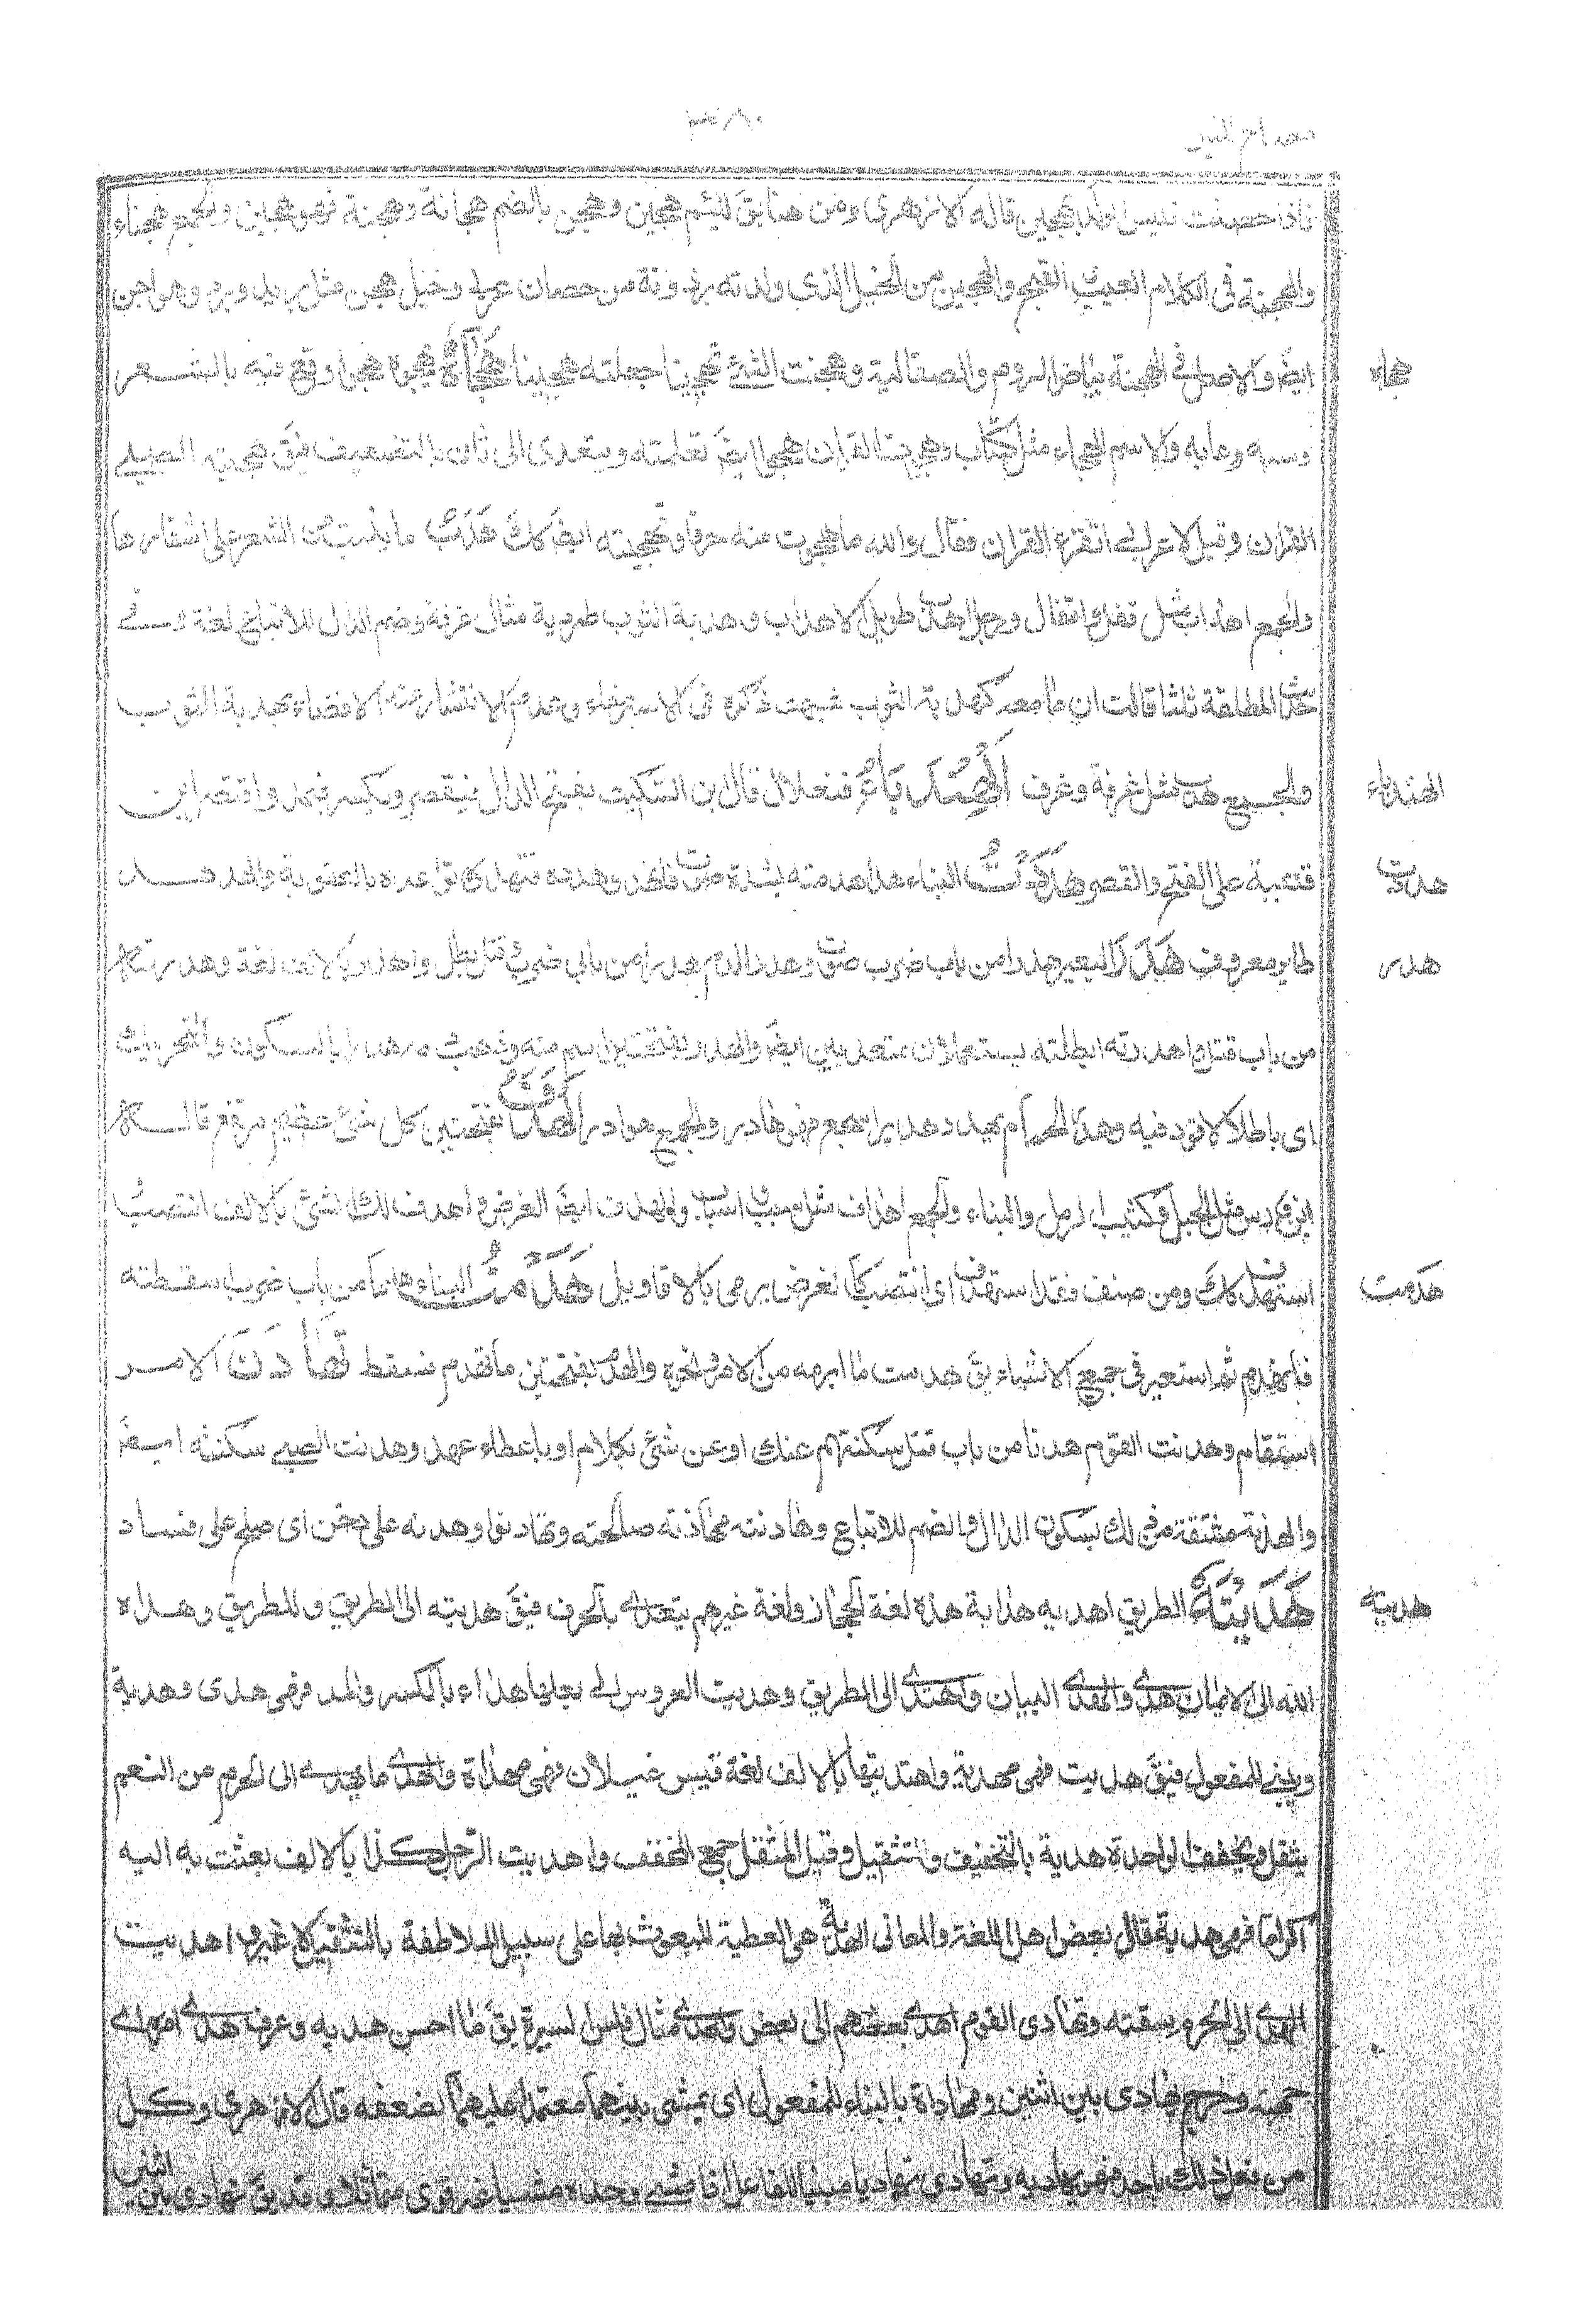 مصباح المنير
فاذا حصنت فليس الولد بهجين قاله الازهري ومن هنا يق لليئم هجين وهجن بالضم هجانة وهجنة فهو هجين والجمع هجناء
والهجنة في الكلام العيب القبيح والهجين من الخيل الذي ولدته برذونة من حصان عربي وخيل هجن مثل بريد وبرد وهواجن
هجاء
ايضا والاصل في الهجنة بياض الروم والصقالبة وهجنت الشئ تهجينا جعلته هجينا هجاه يهجوه هجوا وقع فيه بالشعر
وسبه وعابه والاسم الهجاء مثل كتاب وهجوت القران هجوا ايضا تعلمته ويتعدى الى ثان بالتضعيف فيق هجيته الصبي
القران وقيل لاعرابي اتقرء القران فقال والله ما هجوت منه حرفا وتهجيته ايضا كذلك هدب ما ينبت من الشعر على اشفارها
والجمع اهداب مثل قفل واقفال ورجل اهدب طويل الاهداب وهدبة الثوب طرته مثال غرفة وضم الدال للاتباع لغة وفي
حديث المطلقة ثلثا قالت ان ما معه كهدبة الثوب شبهت ذكره في الاسترخاء وعدم الانتشار عند الافضاء بهدبة الثوب
الهندباء
والجمع هدب مثل غرفة وغرف الهندباء فنعلال قال ابن السكيت بفتح الدال فيقصر ويكسر فيمد واقتصر ابن
هددت
قتيبة على الفتح والقصر هددت البناء هدا هدمته بشدة صوت فانهد وهدده وتهدده توعده بالعقوبة والهدهد
هدر
طاير معروف هدر البعير هدرا من باب ضرب صوت وهدر الدم هدرا من بابي ضرب وقتل بطل واهدر بالالف لغة وهدرته
من باب قتل واهدرته ابطلته يستعملان متعديين ايضا والهدر بفتحتين اسم منه وذهب دمه هدرا بالسكون والتحريك
اى باطلا لا قود فيه وهدر الحمام يهدر هديرا سجع فهو هادر والجمع هوادر الهدف بفتحتين كل شئ عظيم مرتفع قاله
ابن فارس مثل الجبل وكثيب الرمل والبناء والجمع اهداف مثل سبب واسباب والهدف ايضا الغرض واهدف لك الشئ بالالف انتصب
هدمت
استهدف كذلك ومن صنف فقد استهدف اى انتصب كالغرض يرمى بالاقاويل هدمت البناء هدما من باب ضرب سقطته
فانهدم ثم استعير في جميع الاشياء يق هدمت ما ابرمه من الامر ونحوه والهدم بفتحتين ما تهدم فسقط تهادن الامر
استقام وهدنت القوم هدنا من باب قتل سكنتهم عنك او عن شئ بكلام او باعطاء عهد وهدنت الصبي سكنته ايضا
والهدنة مشتقة من ذلك بسكون الدال والضم للاتباع وهادنته مهادنة صالحته وتهادنوا وهدنة على دخن اى صلح على فساد
هديته
هديته الطريق اهديه هداية هذه لغة الحجاز ولغة غيرهم يتعدى بالحرف فيق هديته الى الطريق وللطريق وهداه
الله الى الايمان هدى والهدى البيان واهتدى الى الطريق وهديت العروس الى بعلها هداء بالكسر والمد فهي هدى وهدية
ويبنى للمفعول فيق هديت فهي مهدية واهديتها بالالف لغة قيس غيلان فهي مهداة والهدى ما يهدى الى الحرم من النعم
يثقل ويخفف الواحدة هدية بالتخفيف والتثقيل وقيل المثقل جمع المخفف واهديت الرجل كذا بالالف بعثت به اليه
اكراما فهو هدية قال بعض اهل اللغة والمعانى الهدية هي العطية المبعوث بها على سبيل الملاطفة بالتثقيل لا غير واهديت
الهدى الى الحرم سقته وتهادى القوم اهدى بعضهم الى بعض والهدى مثال فلس السيرة يق ما احسن هديه وعرف هدى امره اى
جهته وخرج يهادى بين اثنين مهاداة بالبناء للمفعول اى يمشى بينهما معتمدا عليهما لضعفه قال الازهري وكل
من فعل ذلك باحد فهو يهاديه وتهادى تهاديا مبنيا للفاعل اذا مشى وحده مشيا غير قوى متمائلا وقد يق تهادى بين
اثنين